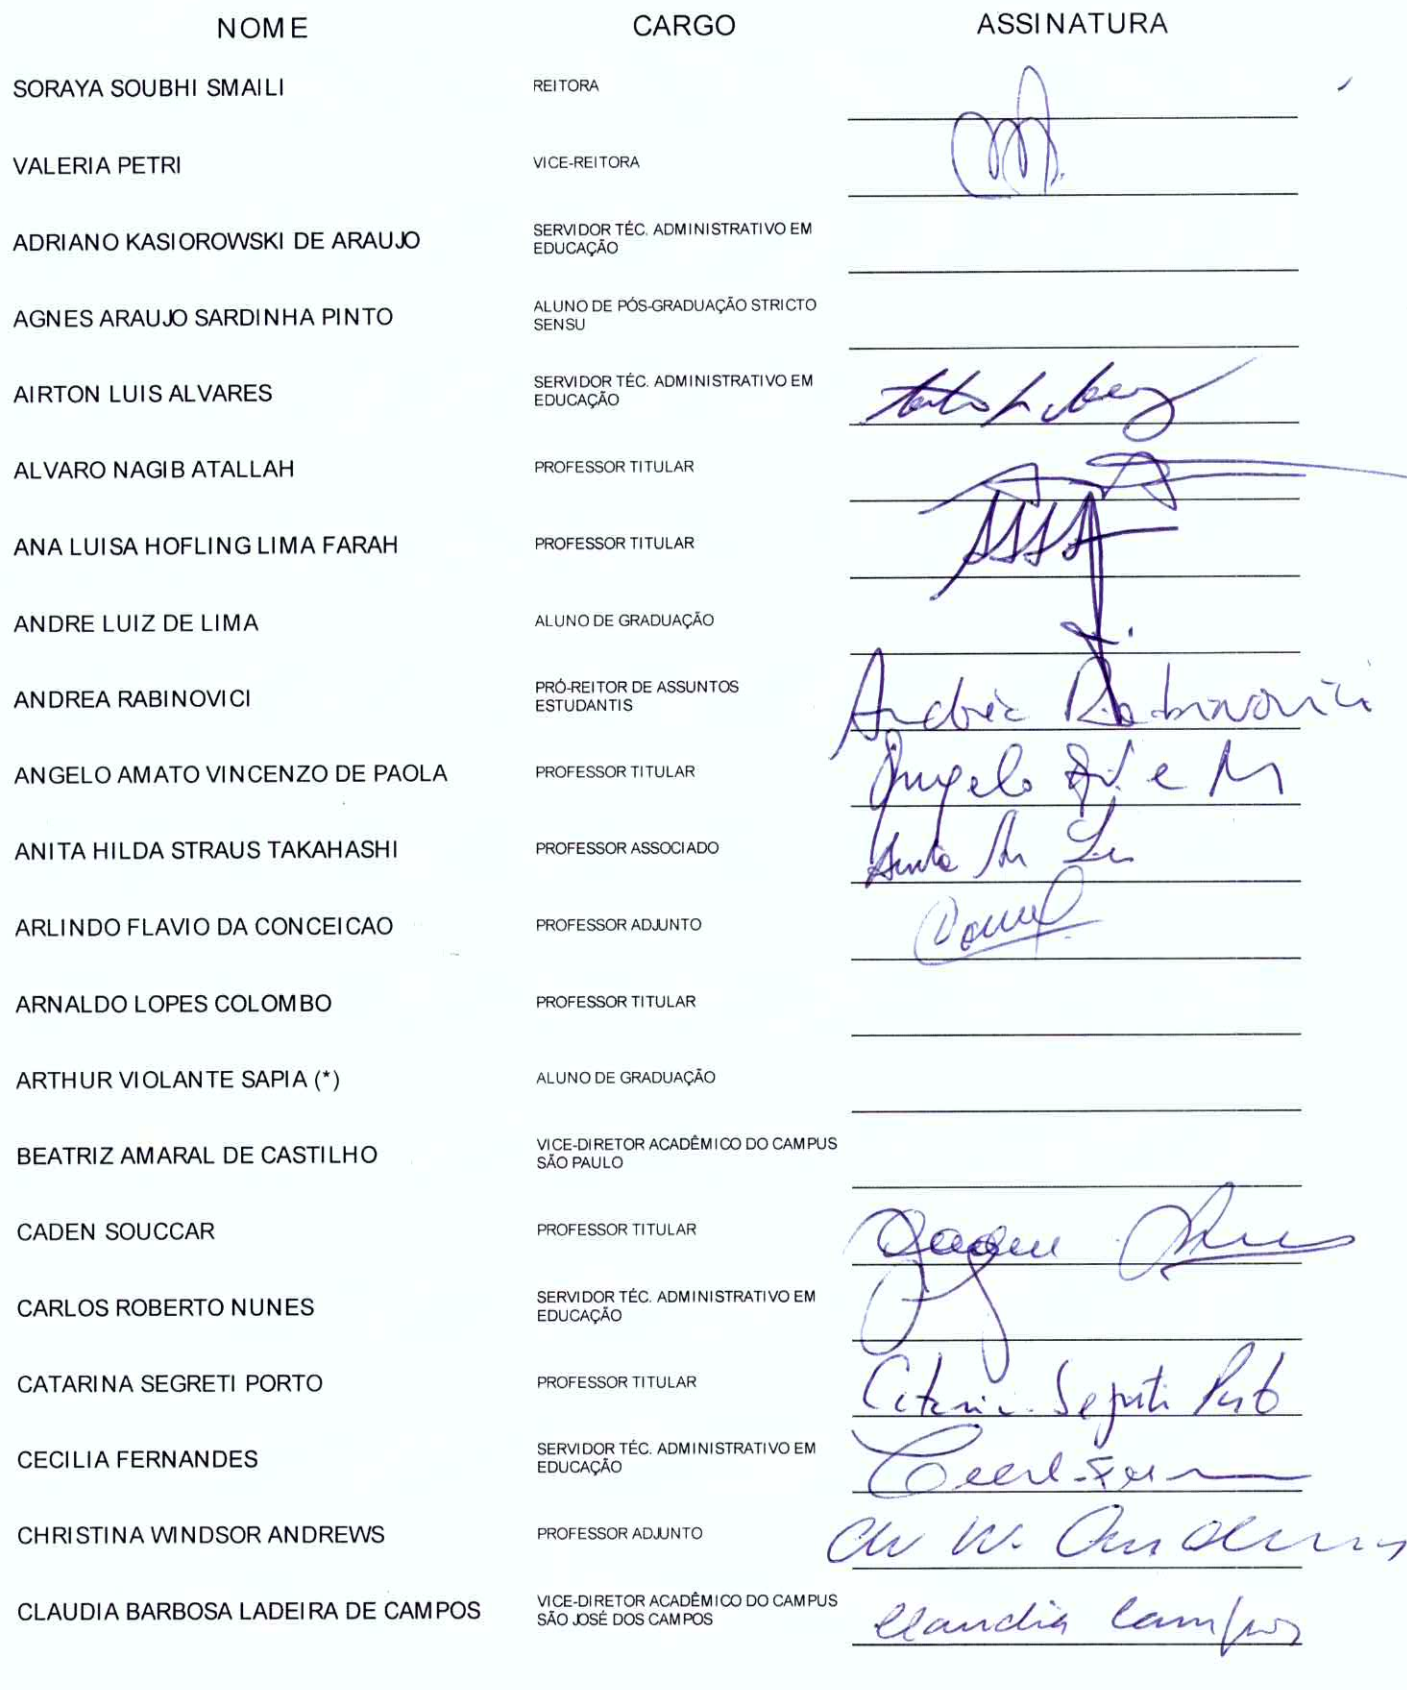 NOME CARGO ASSINATURA
SORAYA SOUBHI SMAILI REITORA
VALERIA PETRI VICE-REITORA
ADRIANO KASIOROWSKI DE ARAUJO SERVIDOR TÉC. ADMINISTRATIVO EM
EDUCAÇÃO
AGNES ARAUJO SARDINHA PINTO ALUNO DE PÓS-GRADUAÇÃO STRICTO
SENSU
AIRTON LUIS ALVARES SERVIDOR TÉC. ADMINISTRATIVO EM
EDUCAÇÃO
ALVARO NAGIB ATALLAH PROFESSOR TITULAR
ANA LUISA HOFLING LIMA FARAH PROFESSOR TITULAR
ANDRE LUIZ DE LIMA ALUNO DE GRADUAÇÃO
ANDREA RABINOVICI PRÓ-REITOR DE ASSUNTOS
ESTUDANTIS Andréa Rabinovici
ANGELO AMATO VINCENZO DE PAOLA PROFESSOR TITULAR Angelo
ANITA HILDA STRAUS TAKAHASHI PROFESSOR ASSOCIADO
ARLINDO FLAVIO DA CONCEICAO PROFESSOR ADJUNTO
ARNALDO LOPES COLOMBO PROFESSOR TITULAR
ARTHUR VIOLANTE SAPIA (*) ALUNO DE GRADUAÇÃO
BEATRIZ AMARAL DE CASTILHO VICE-DIRETOR ACADÊMICO DO CAMPUS
SÃO PAULO
CADEN SOUCCAR PROFESSOR TITULAR
CARLOS ROBERTO NUNES SERVIDOR TÉC. ADMINISTRATIVO EM
EDUCAÇÃO
CATARINA SEGRETI PORTO PROFESSOR TITULAR Catarina Segreti Porto
CECILIA FERNANDES SERVIDOR TÉC. ADMINISTRATIVO EM
EDUCAÇÃO
CHRISTINA WINDSOR ANDREWS PROFESSOR ADJUNTO Ch W. Andrews
CLAUDIA BARBOSA LADEIRA DE CAMPOS VICE-DIRETOR ACADÊMICO DO CAMPUS
SÃO JOSÉ DOS CAMPOS Claudia Campos